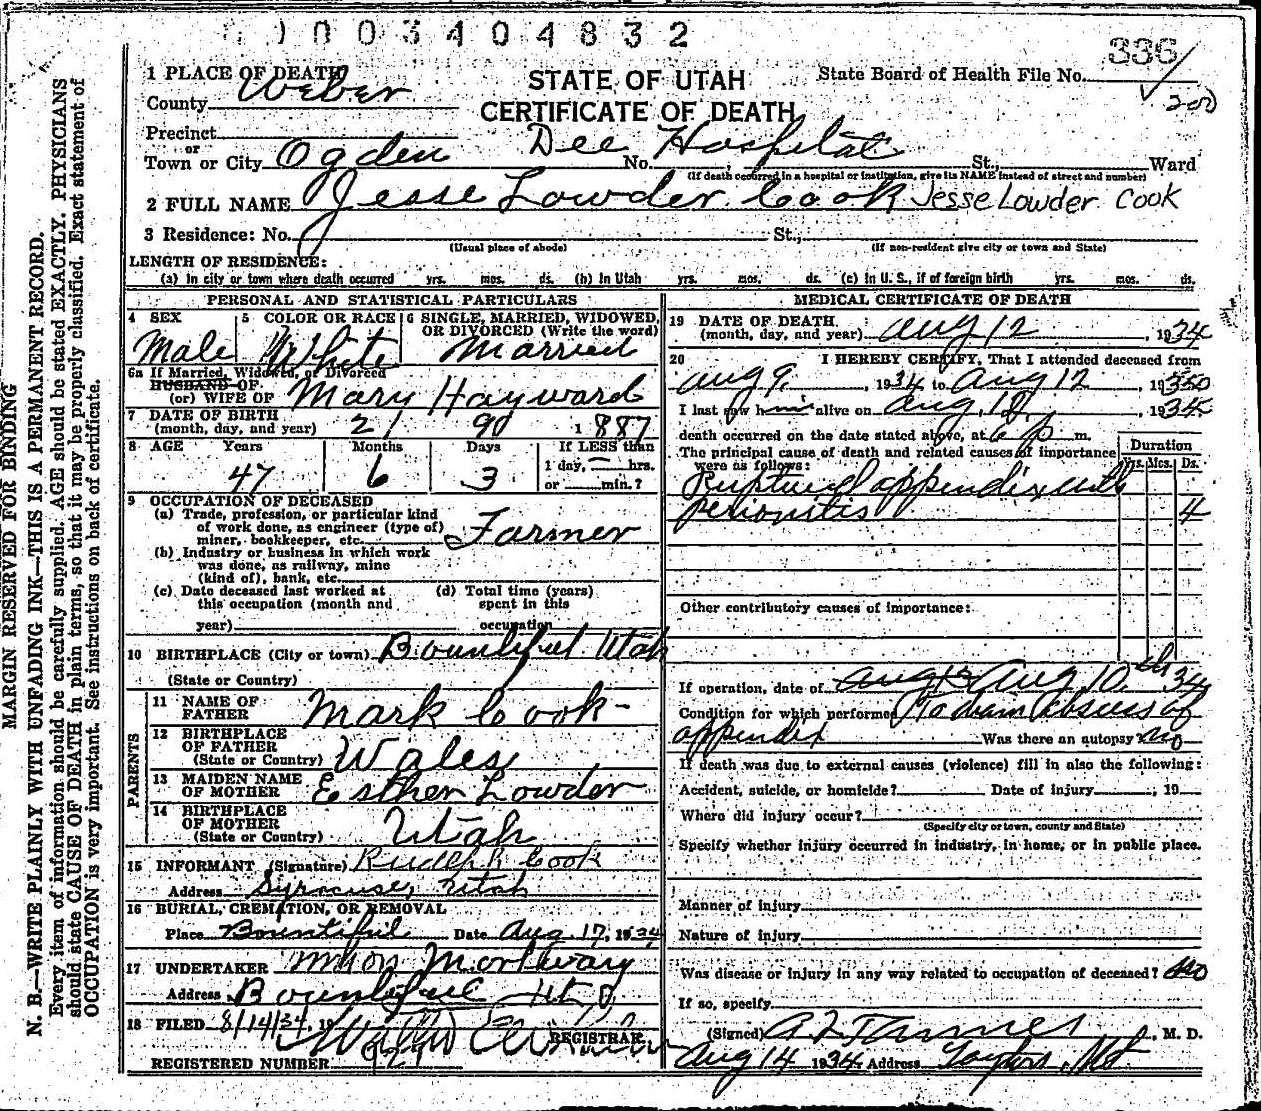 0 0 0 3 4 0 4 8 3 2
336
200
STATE OF UTAH
CERTIFICATE OF DEATH
State Board of Health File No.
1 PLACE OF DEATH
County Weber
Precinct
or
Town or City Ogden No. Dee Hospital St., Ward
(If death occurred in a hospital or institution, give its NAME instead of street and number)
2 FULL NAME Jesse Lowder Cook Jesse Lowder Cook
3 Residence: No. St.,
(Usual place of abode) (If non-resident give city or town and State)
LENGTH OF RESIDENCE:
(a) In city or town where death occurred yrs. mos. ds. (b) In Utah yrs. mos. ds. (c) In U. S., if of foreign birth yrs. mos. ds.
PERSONAL AND STATISTICAL PARTICULARS
4 SEX Male
5 COLOR OR RACE White
6 SINGLE, MARRIED, WIDOWED, OR DIVORCED (Write the word) Married
6a If Married, Widowed, or Divorced
HUSBAND OF
(or) WIFE OF Mary Hayward
7 DATE OF BIRTH
(month, day, and year) 2/ 9 1887
8 AGE Years Months Days If LESS than
47 6 3 1 day, hrs.
or min.?
9 OCCUPATION OF DECEASED
(a) Trade, profession, or particular kind
of work done, as engineer (type of)
miner, bookkeeper, etc. Farmer
(b) Industry or business in which work
was done, as railway, mine
(kind of), bank, etc.
(c) Date deceased last worked at
this occupation (month and
year)
(d) Total time (years)
spent in this
occupation
10 BIRTHPLACE (City or town) Bountiful Utah
(State or Country)
PARENTS
11 NAME OF
FATHER Mark Cook
12 BIRTHPLACE
OF FATHER
(State or Country) Wales
13 MAIDEN NAME
OF MOTHER Esther Lowder
14 BIRTHPLACE
OF MOTHER
(State or Country) Utah
15 INFORMANT (Signature) Cook
Address Syracuse, Utah
16 BURIAL, CREMATION, OR REMOVAL
Place Bountiful Date Aug 17, 1934
17 UNDERTAKER Union Mortuary
Address Bountiful
18 FILED 8/14/34, 19
REGISTRAR
REGISTERED NUMBER
MEDICAL CERTIFICATE OF DEATH
19 DATE OF DEATH
(month, day, and year) Aug 12, 1934
20 I HEREBY CERTIFY, That I attended deceased from
Aug 9, 1934 to Aug 12, 19
I last saw him alive on Aug 12, 1934
death occurred on the date stated above, at 6 p m.
The principal cause of death and related causes of importance
were as follows:
Duration
Yrs. Mos. Ds.
Ruptured appendix with
perionitis 4
Other contributory causes of importance:
If operation, date of Aug 13 Aug 10th 34
Condition for which performed To drain abscess of
appendix Was there an autopsy no
If death was due to external causes (violence) fill in also the following:
Accident, suicide, or homicide? Date of injury , 19
Where did injury occur?
(Specify city or town, county and State)
Specify whether injury occurred in industry, in home, or in public place.
Manner of injury
Nature of injury
Was disease or injury in any way related to occupation of deceased? no
If so, specify
(Signed) A Z Tanner, M. D.
Aug 14 1934 Address Layton,
MARGIN RESERVED FOR BINDING
N. B.—WRITE PLAINLY WITH UNFADING INK—THIS IS A PERMANENT RECORD.
Every item of information should be carefully supplied. AGE should be stated EXACTLY. PHYSICIANS
should state CAUSE OF DEATH in plain terms, so that it may be properly classified. Exact statement of
OCCUPATION is very important. See instructions on back of certificate.